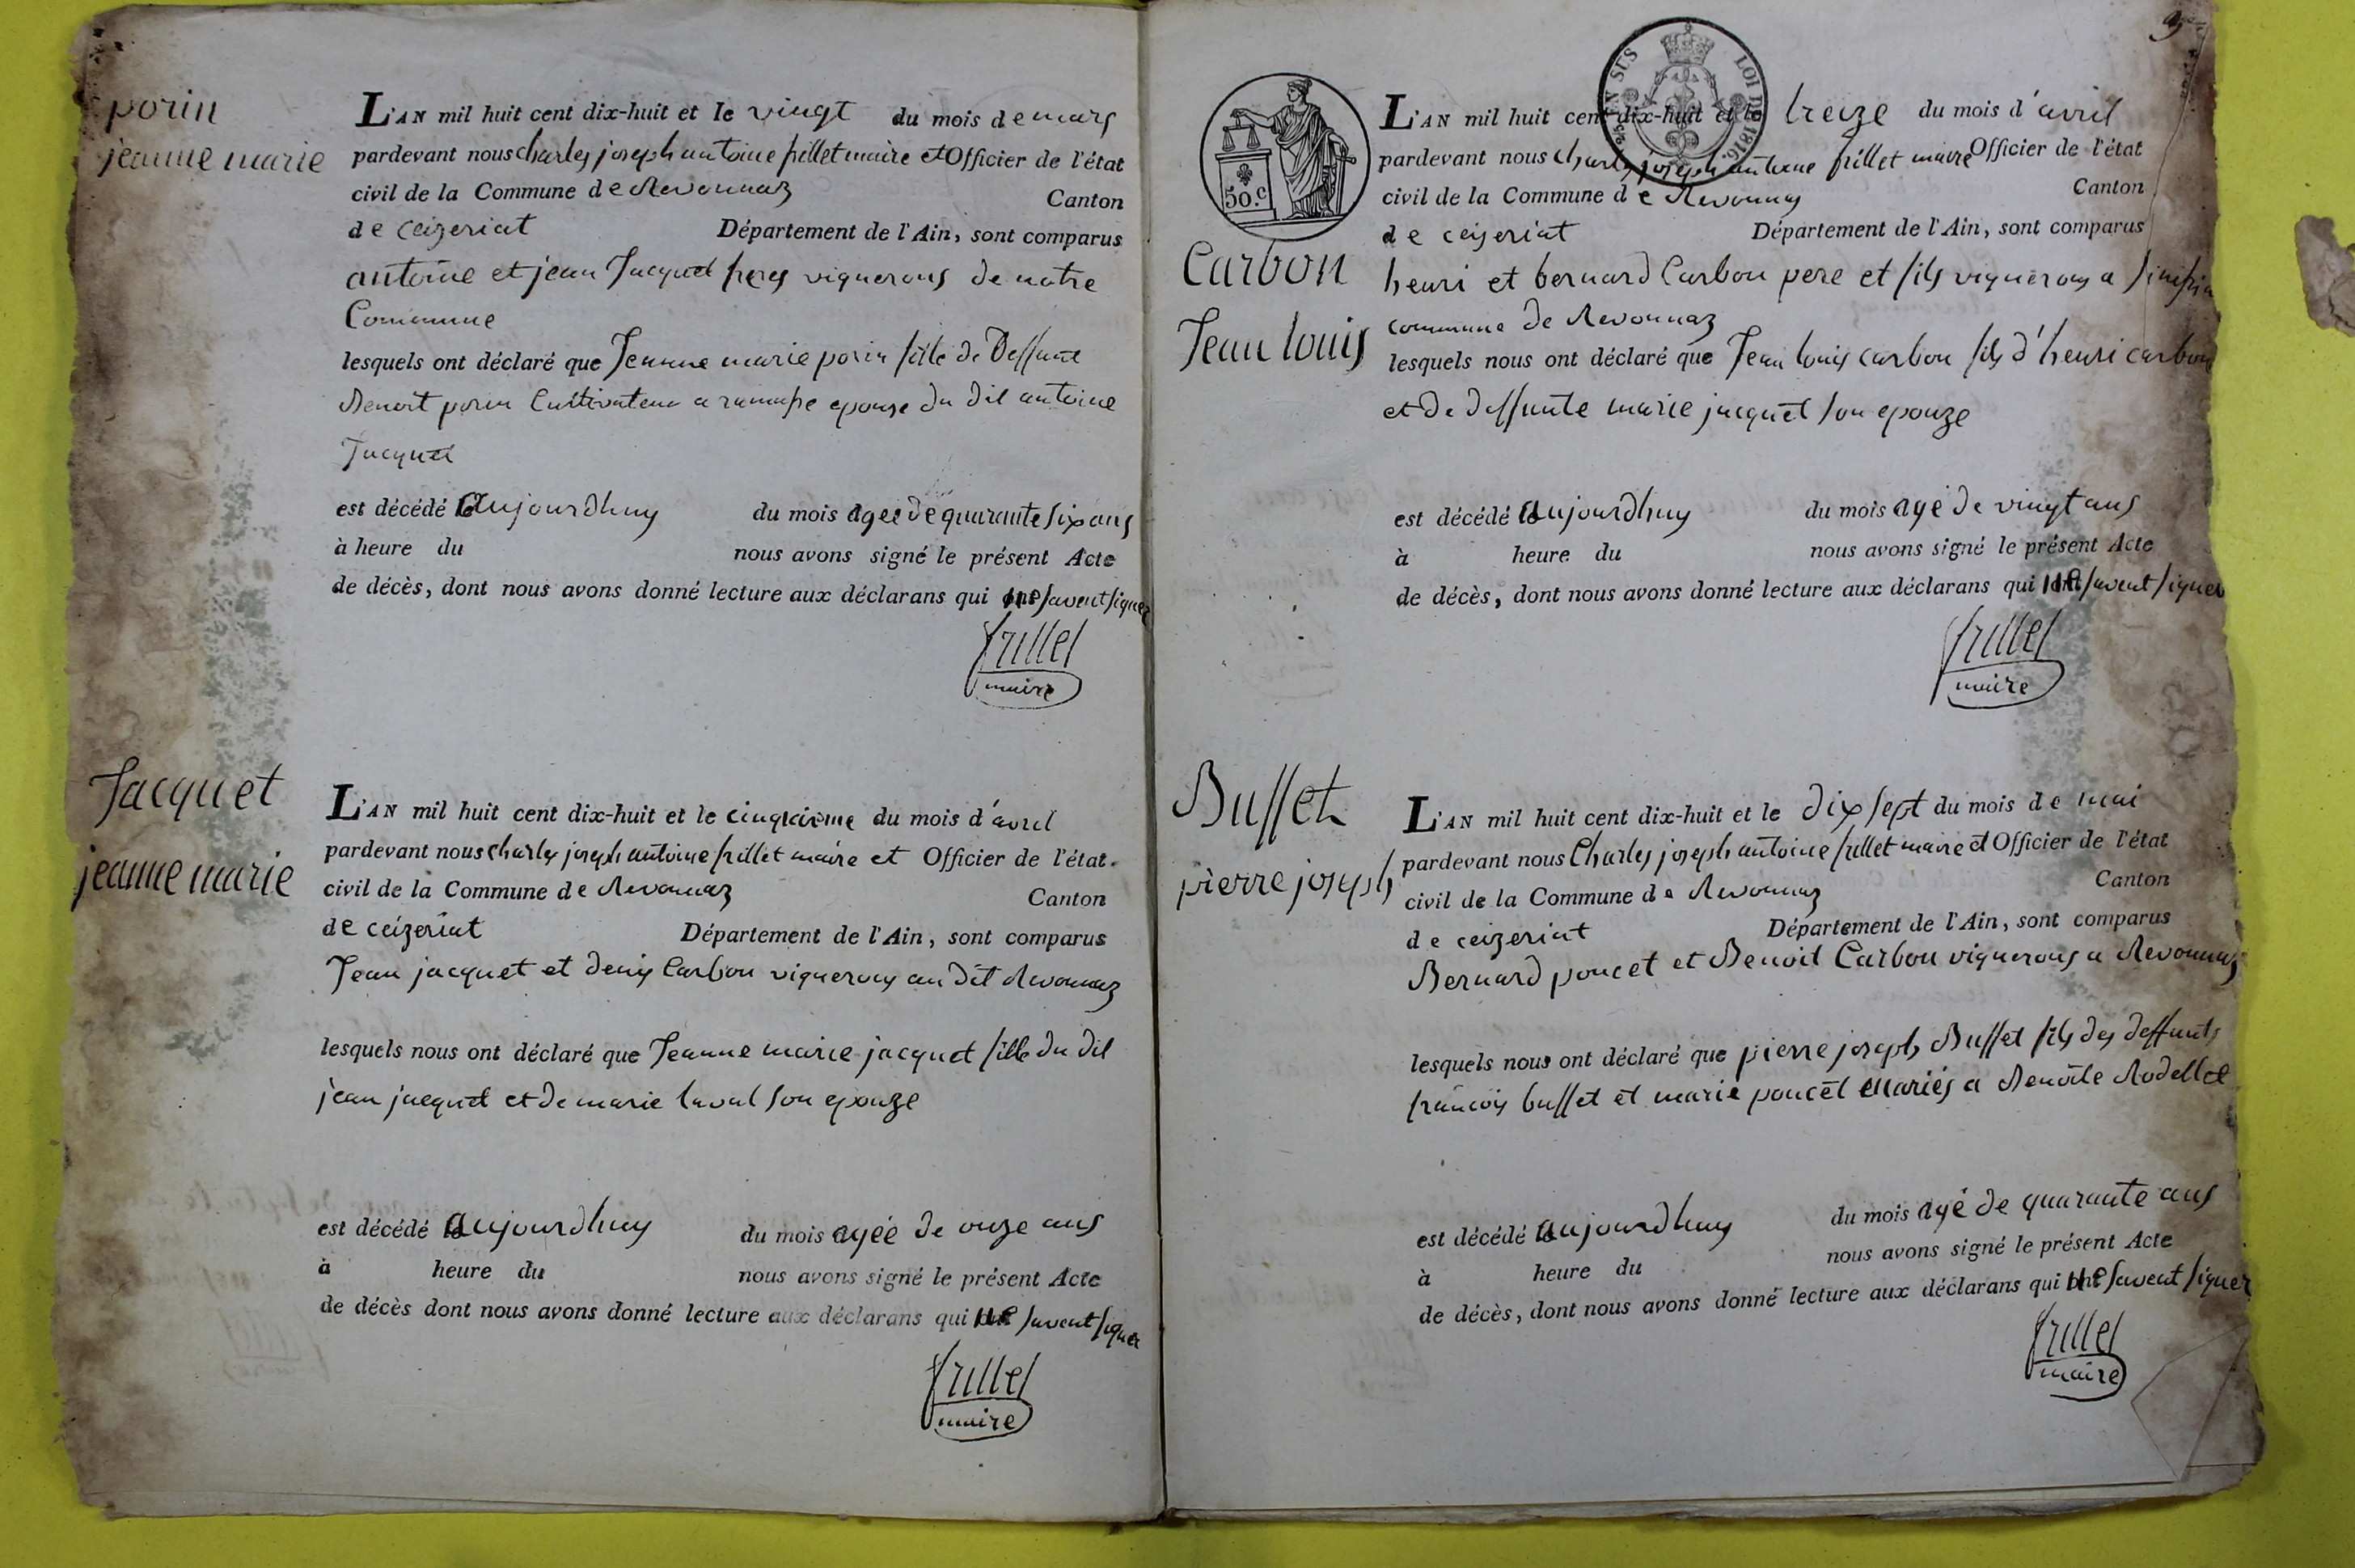 porin
jeanne marie
L'AN mil huit cent dix-huit et le vingt du mois de mars
pardevant nous charles joseph antoine frillet maire et Officier de l'état
civil de la Commune de Revonnaz
Canton
de ceizeriat Département de l'Ain, sont comparus
antoine et jean Jacquet freres vignerons de notre
Commune
lesquels ont déclaré que Jeanne marie porin fille de deffunt
Benoit porin Cultivateur a ramasse epouse du dit antoine
Jacquet
est décédé aujourdhuy du mois agée de quarante six ans
à heure du nous avons signé le présent Acte
de décès, dont nous avons donné lecture aux déclarans qui ne savent signer
frillet
maire
Jacquet
jeanne marie
L'AN mil huit cent dix-huit et le cinquieme du mois d'avril
pardevant nous charles joseph antoine frillet maire et Officier de l'état
civil de la Commune de Revonnaz
Canton
de ceizeriat Département de l'Ain, sont comparus
Jean jacquet et denis Carbon vignerons au dit Revonnaz
lesquels nous ont déclaré que Jeanne marie jacquet fille du dit
jean jacquet et de marie laval son epouze
est décédé aujourdhuy du mois agée de onze ans
à heure du nous avons signé le présent Acte
de décès dont nous avons donné lecture aux déclarans qui ne savent signer
frillet
maire
50.c
EN SUS LOI DE 1816
Carbon
Jean louis
L'AN mil huit cent dix-huit et le treize du mois d'avril
pardevant nous charles joseph antoine frillet maire Officier de l'état
civil de la Commune de Revonnas
Canton
de ceizeriat Département de l'Ain, sont comparus
henri et bernard Carbon pere et fils vignerons a
commune de Revonnaz
lesquels nous ont déclaré que Jean louis carbon fils d'henri carbon
et de deffunte marie jacquet son epouze
est décédé aujourdhuy du mois agé de vingt ans
à heure du nous avons signé le présent Acte
de décès, dont nous avons donné lecture aux déclarans qui ne savent signer
frillet
maire
Buffet
pierre joseph
L'AN mil huit cent dix-huit et le dix sept du mois de mai
pardevant nous Charles joseph antoine frillet maire et Officier de l'état
civil de la Commune de Revonnas
Canton
de ceizeriat Département de l'Ain, sont comparus
Bernard poncet et Benoit Carbon vignerons a Revonnaz
lesquels nous ont déclaré que pierre joseph Buffet fils des deffunts
francois buffet et marie poncet mariés a Benoite Rodellet
est décédé aujourdhuy du mois agé de quarante ans
à heure du nous avons signé le présent Acte
de décès, dont nous avons donné lecture aux déclarans qui ne savent signer
frillet
maire